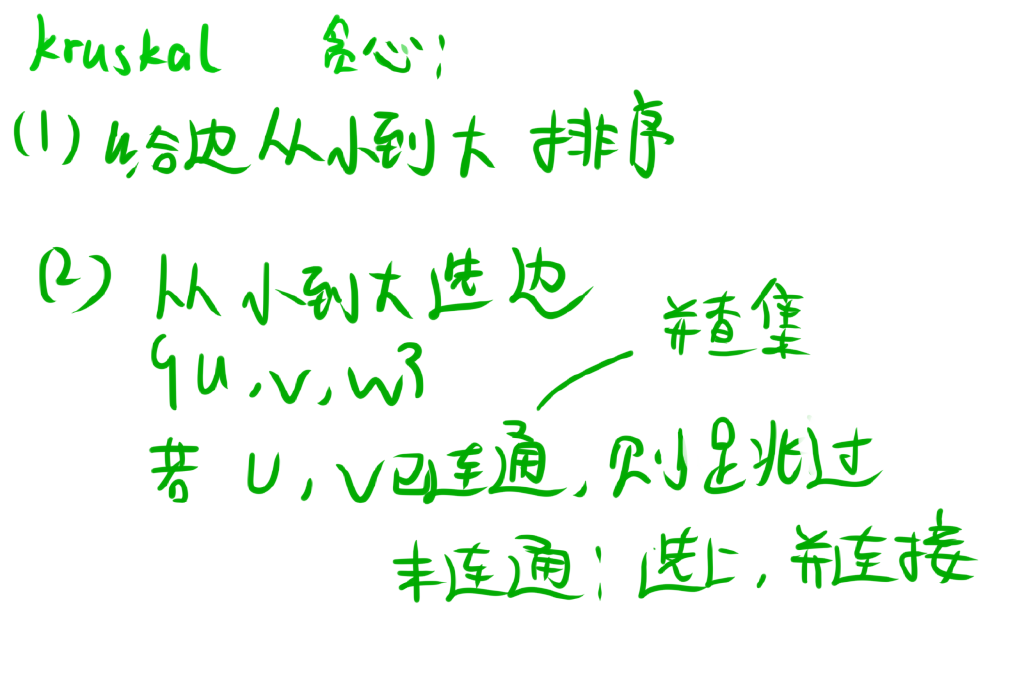 kruskal 贪心：
(1) 给边从小到大 排序
(2) 从小到大选边
{u, v, w}
并查集
若 u, v已连通, 则跳过
未连通：选上, 并连接